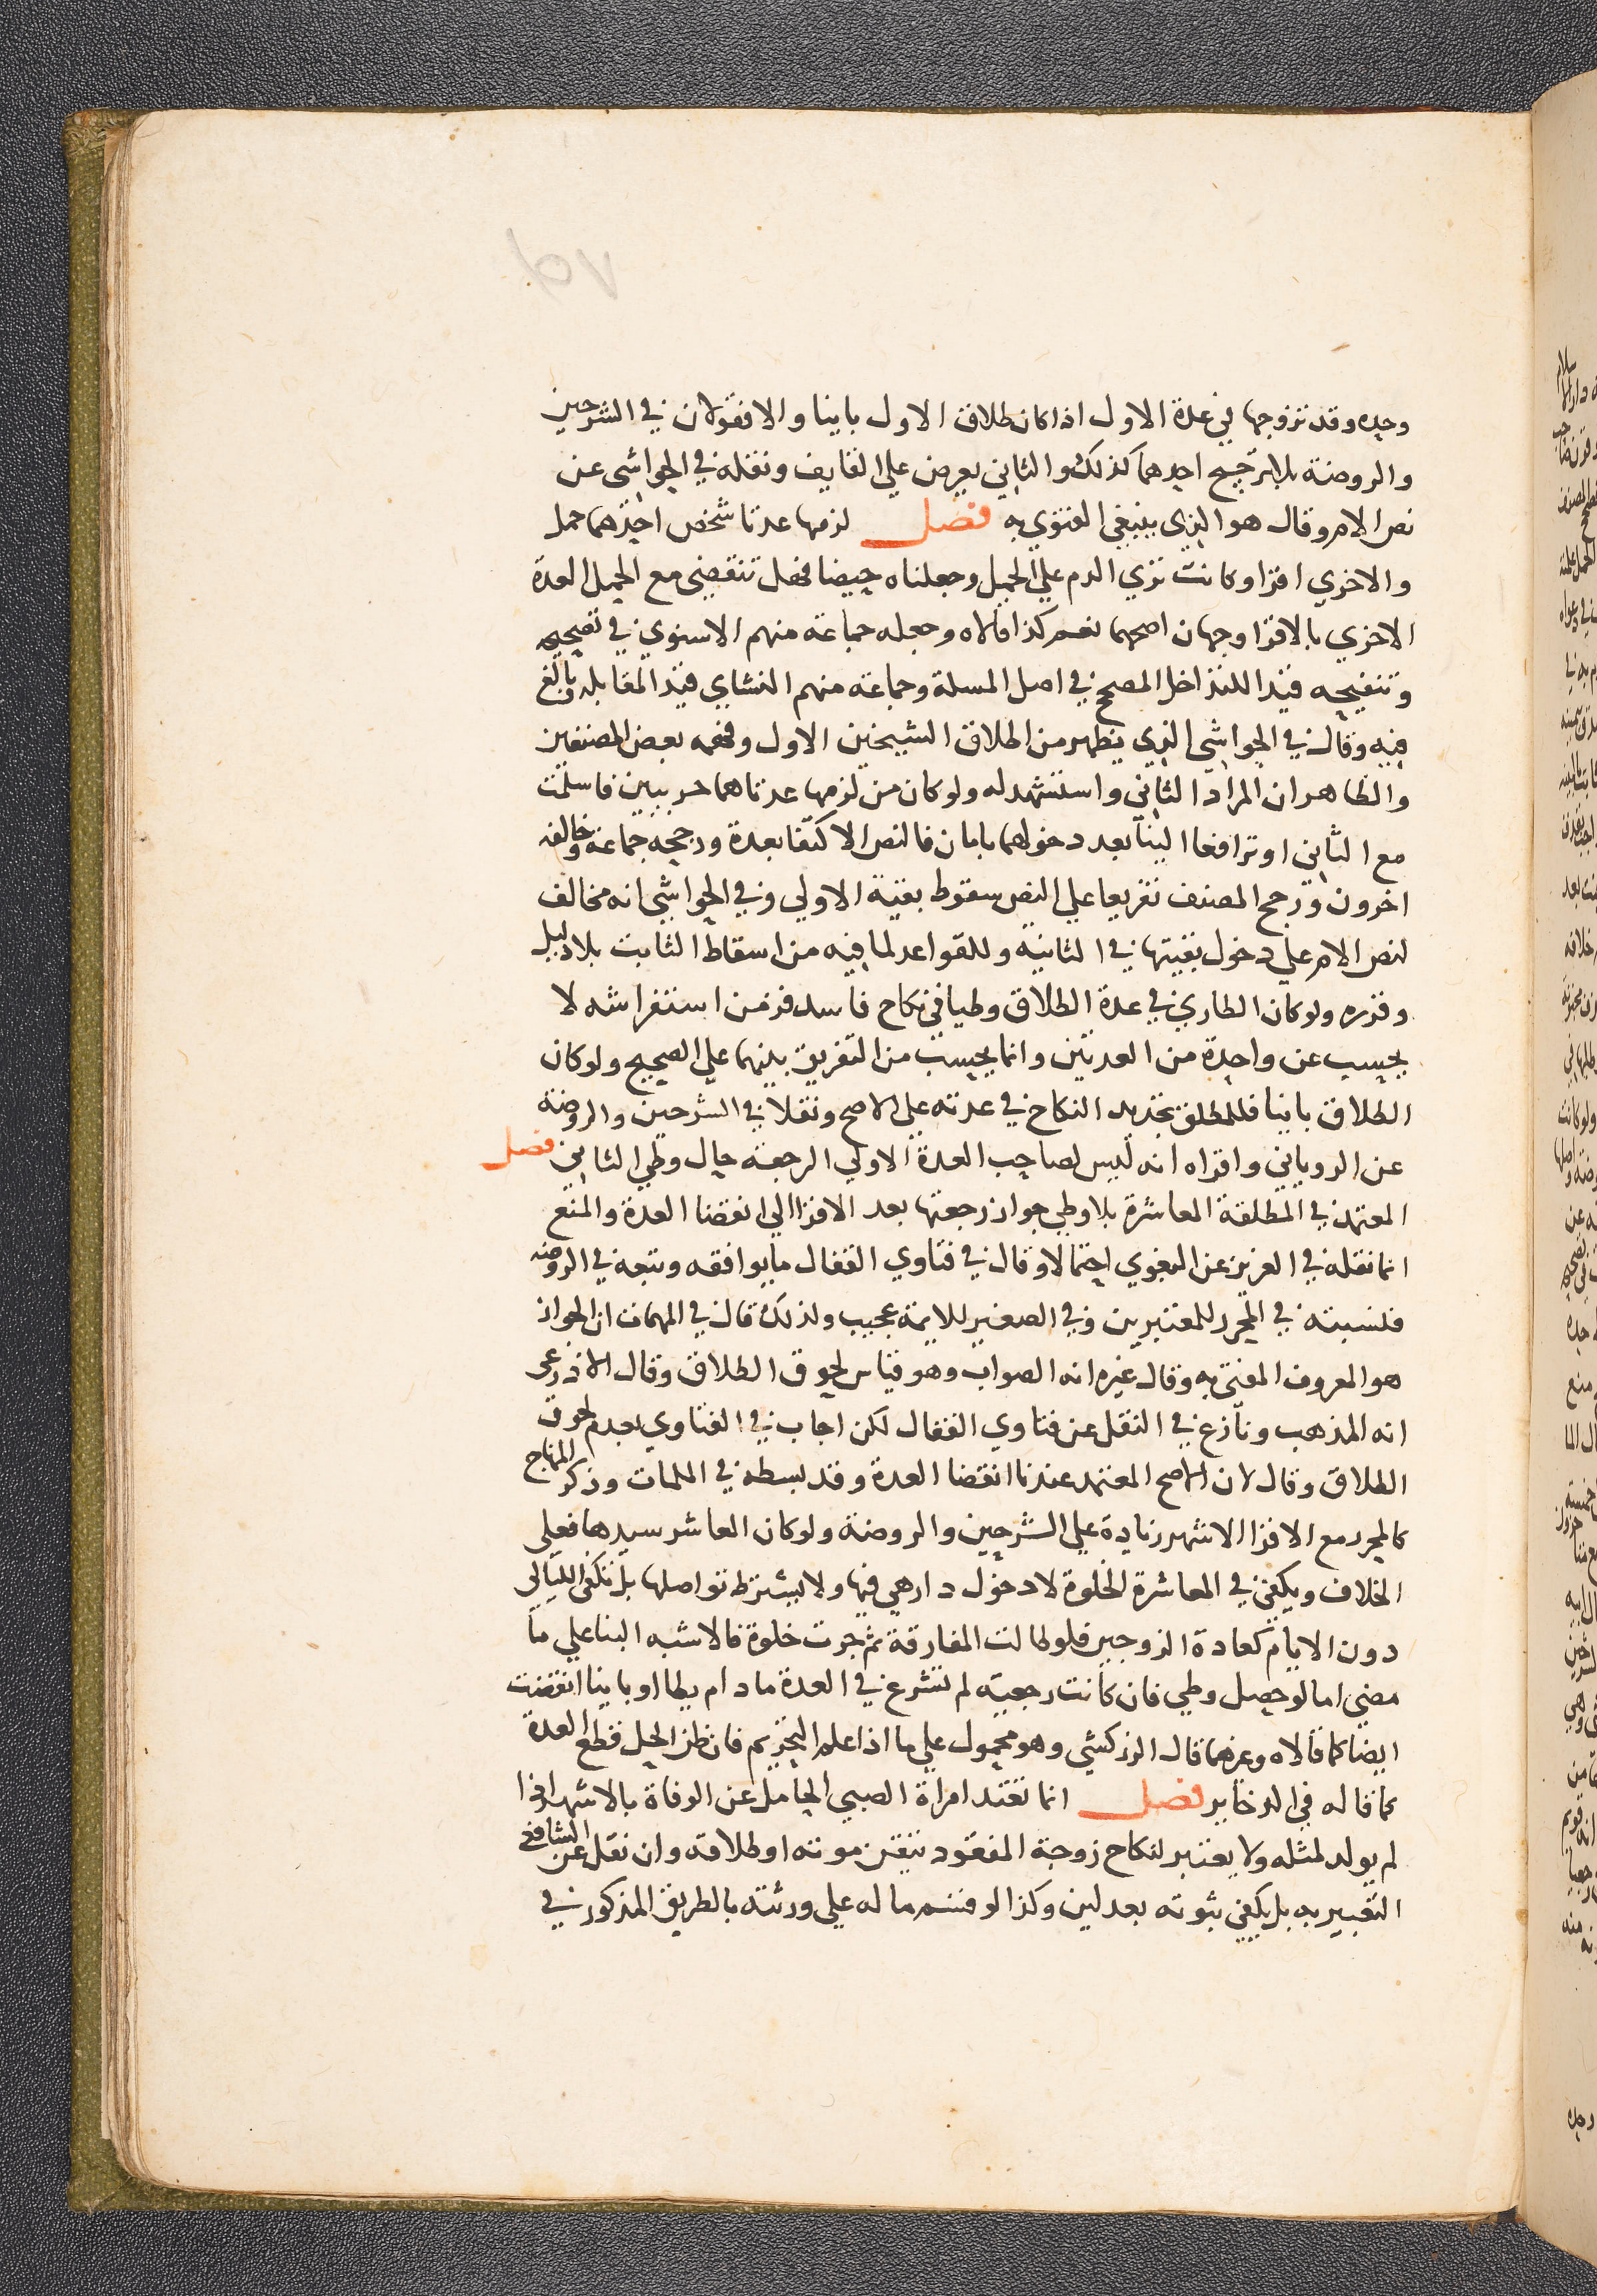 وحيده وقد تزوجها في عدة الاول اذا كان طلاق الاول باينا والا فقولان في الشرحين
والروضة بلا ترجيح احدهما كذلك والثاني يعرض علي القايف ونقله في الحواشي عن
نص الام وقال هو الذي ينبغي الفتوي به فصل لزمها عدتا شخص احدهما حمل
والاخري اقرا وكانت تري الدم علي الحمل وجعلناه حيضا فهل تنقضي مع الحمل العدة
الاخري بالاقرا وجهان اصحهما نعم كذا قالاه وجعله جماعة منهم الاسنوي في تصحيحه
وتنقيحه قيدا للتداخل المصحح في اصل المسلة وجماعة منهم النشاي قيد المقابله وبالغ
فيه وقال في الحواشي الذي يظهر من اطلاق الشيخين الاول وفهمه بعض المصنفين
والظاهر ان المراد الثاني واستشهد له ولو كان من لزمها عدتاهما حربيين فاسلمت
مع الثاني او ترافعا الينا بعد دخولهما بامان فالنص الاكتفا بعدة ورجحه جماعة وخالفه
اخرون ورجح المصنف تفريعا علي النص سقوط بقية الاولي وفي الحواشي انه مخالف
لنص الام علي دخول بقيتها في الثانية وللقواعد لما فيه من اسقاط الثابت بلا دليل
وقرره ولو كان الطاري في عدة الطلاق وطيا في نكاح فاسد فزمن استفراشه لا
يحسب عن واحدة من العدتين وانما يحسب من التفريق بينهما علي الصحيح ولو كان
الطلاق باينا فللمطلق تجديد النكاح في عدته علي الاصح ونقلا في الشرحين والروضة
عن الروياني واقراه انه ليس لصاحب العدة الاولي الرجعة حال وطي الثاني فصل
المعتمد في المطلقة المعاشرة بلا وطي جواز رجعتها بعد الاقرا الي انقضا العدة والمنع
انما نقله في العزيز عن البغوي احتمالا وقال في فتاوي القفال ما يوافقه وتبعه في الروضه
فلنسبته في المحرر للمعتبرين وفي الصغير للايمة عجيب ولذلك قال في المهمات ان الجواز
هو المعروف المفتي به وقال غيره انه الصواب وهو قياس لحوق الطلاق وقال الاذرعي
انه المذهب ونازع في النقل عن فتاوي القفال لكن اجاب في الفتاوي بعدم لحوق
الطلاق وقال لان الاصح المعتمد عندنا انقضا العدة وقد بسطه في الملمات وذكر المنهاج
كالمحرر مع الاقرا الاشهر زيادة علي الشرحين والروضة ولو كان المعاشر سيدها فعلي
الخلاف ويكفي في المعاشرة الخلوة لا دخول دار هي فيها ولا يشترط تواصلها بل تكفي الليالي
دون الايام كعادة الزوجين فلو طالت المفارقة ثم جرت خلوة فالاشبه البنا علي ما
مضي اما لو حصل وطي فان كانت رجعية لم تشرع في العدة ما دام يطا او باينا انقضت
ايضا كما قالاه وغيرهما قال الزركشي وهو محمول علي ما اذا علم التحريم فان ظن الحل قطع العدة
كما قاله في الذخاير فصل انما تعتد امراة الصبي الحامل عن الوفاة بالاشهر اذا
لم يولد لمثله ولا يعتبر لنكاح زوجة المفقود تيقن موته او طلاقه وان نقل عن الشافعي
التعبير به بل يكفي ثبوته بعدلين وكذا لو قسم ماله علي ورثته بالطريق المذكور في